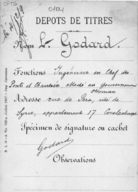 DÉPOTS DE TITRES
Nom L. Godard.
Fonctions Ingénieur en Chef des
Ponts et Chaussées attaché au gouvernement
Ottoman
Adresse rue de Péra, cité de
Syrie, appartement 17 Constantinople
Spécimen de signature ou cachet
Godard
Observations